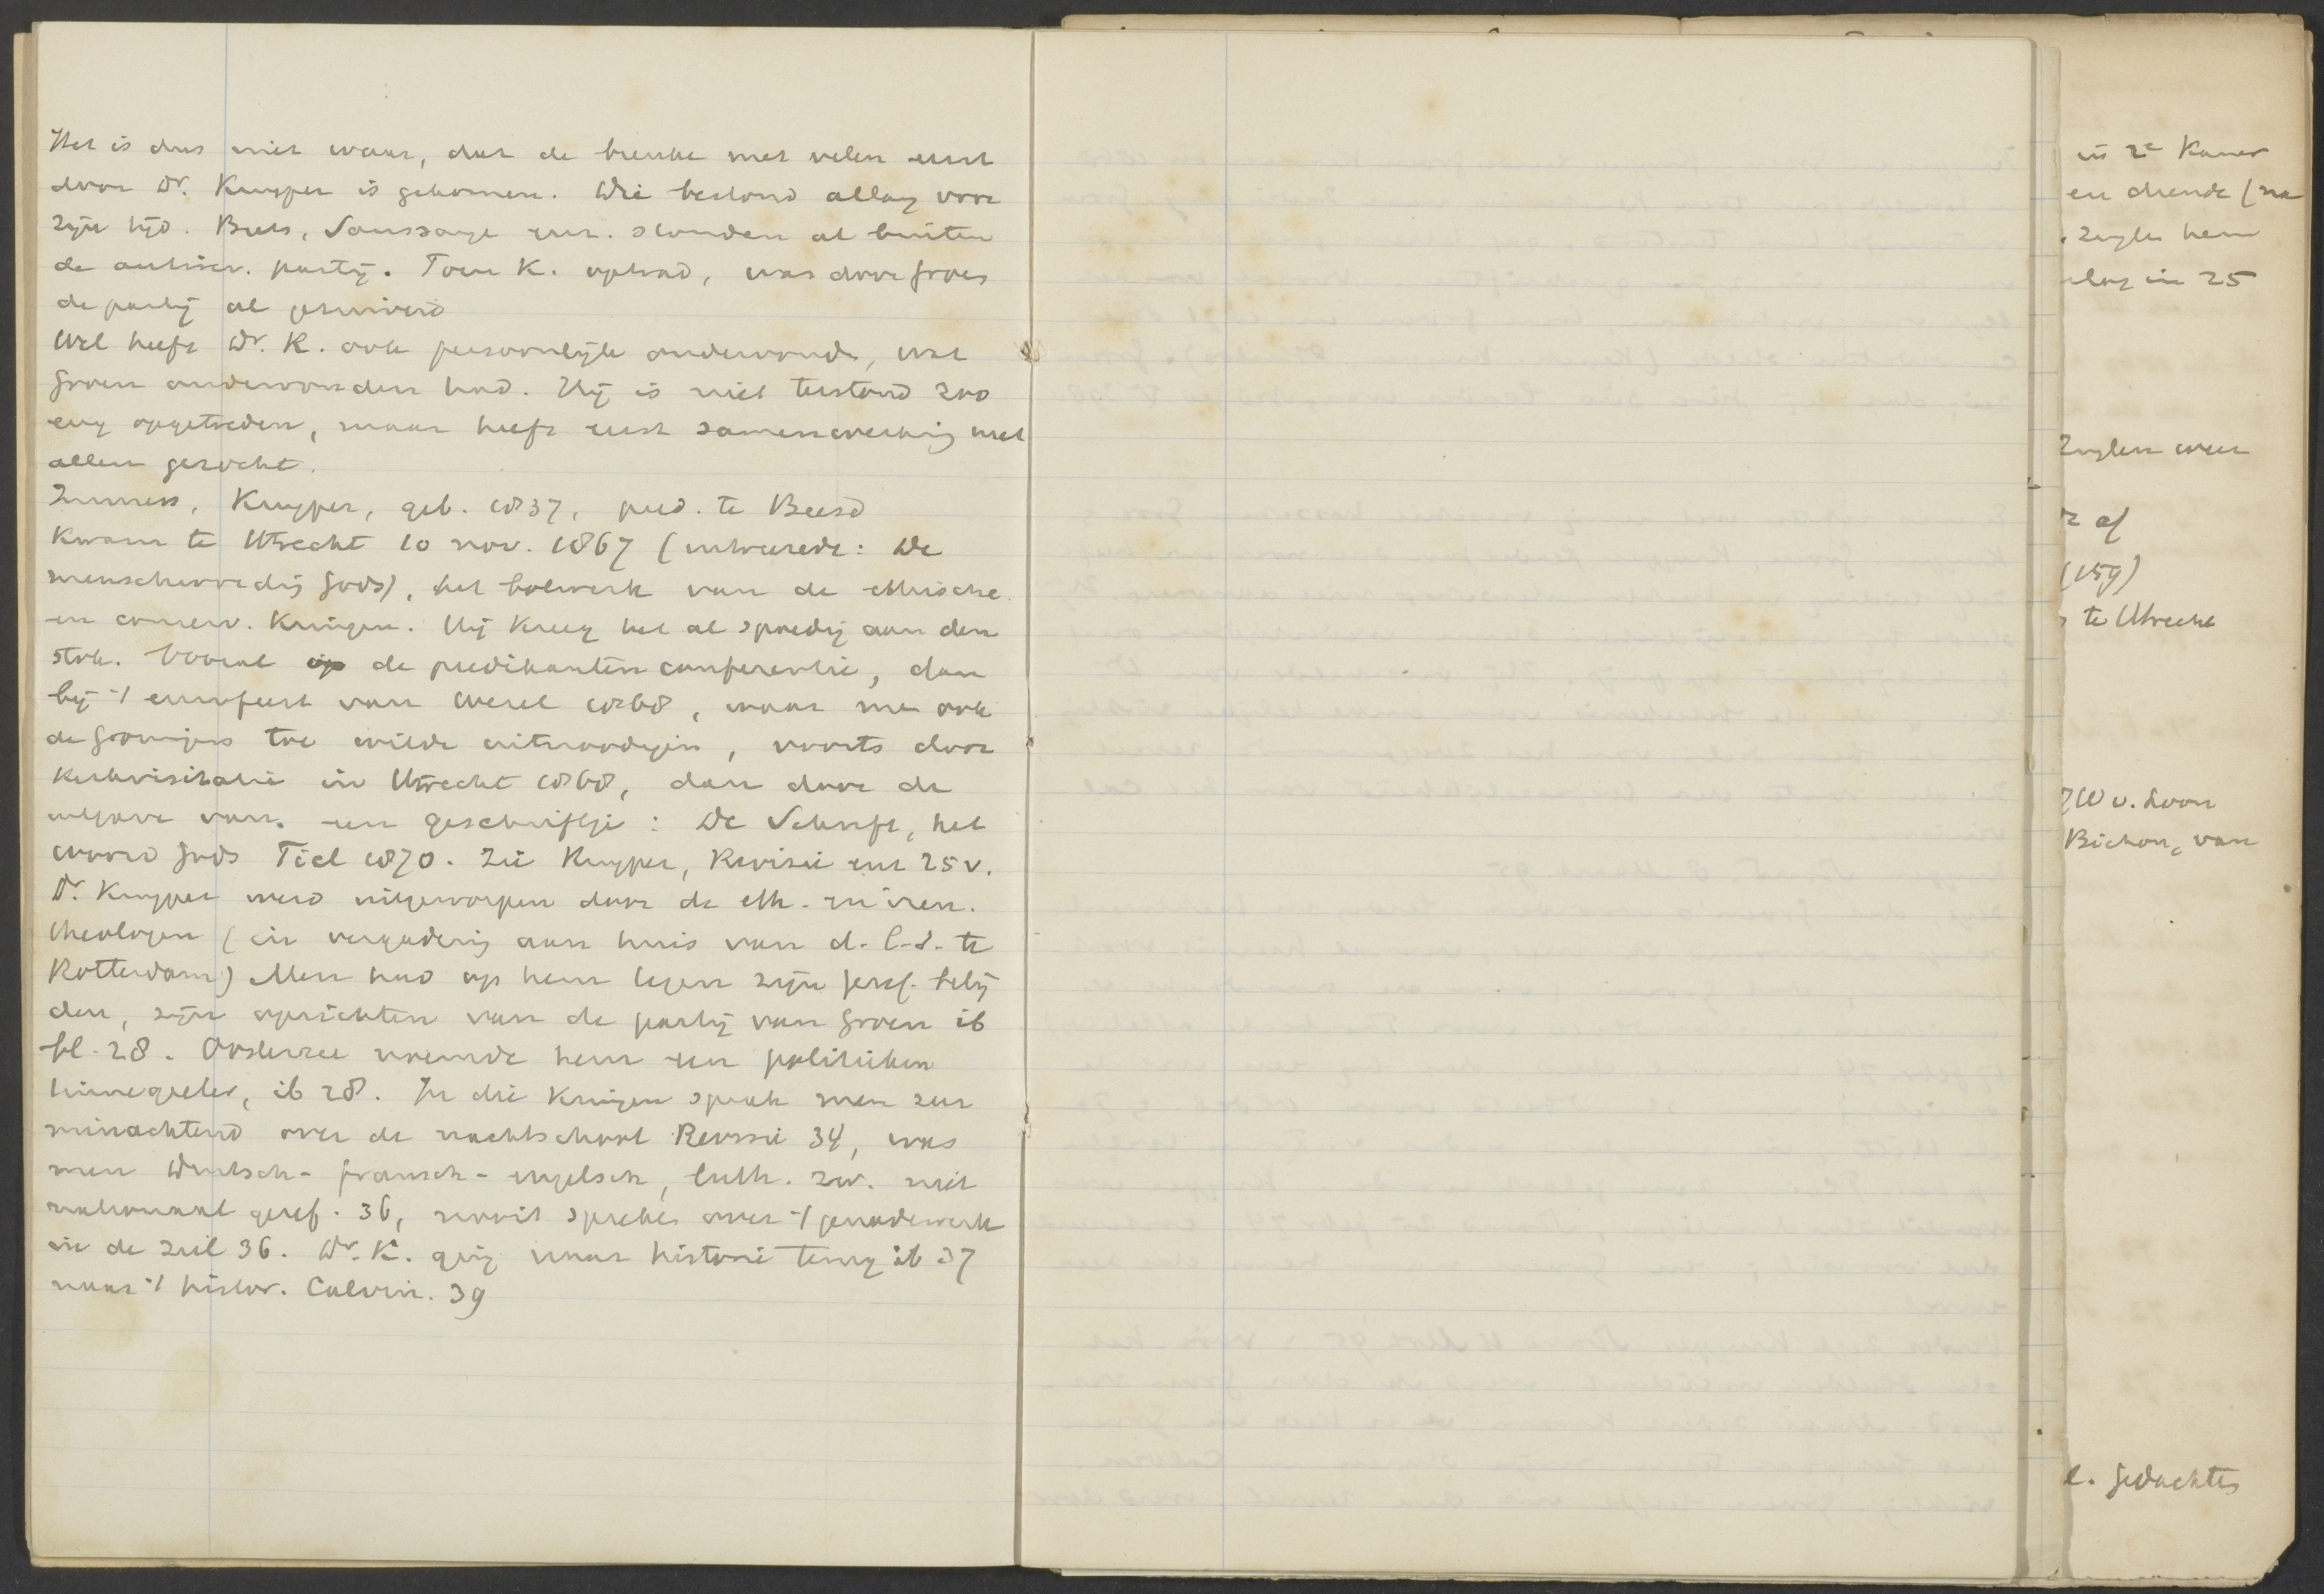 Het is dus niet waar, dat de breuke met velen eerst
door Dr. Kuyper is gekomen. Die bestond allang voor
zijn tijd. Beets, Saussaye enz. stonden al buiten
de antirev. partij. Toen K. optrad, was door Groen
de partij al gezuiverd
Wel heeft Dr. K. ook persoonlijk ondervonden, wat
Groen ondervonden had. Hij is niet terstond zoo
eng opgetreden, maar heeft eerst samenwerking met
allen gezocht.
Immers, Kuyper, geb. 1837, pred. te Beesd
Kwam te Utrecht 10 nov. 1867 (intreerede: De
menschwording Gods), het bolwerk van de ethische
en conserv. Kringen. Hij Kreeg het al spoedig aan den
stok. Vooral op de predikanten conferentie, dan
bij 't eeuwfeest van Wesel 1868, waar men ook
de Groningers toe wilde uitnoodigen, voorts door
Kerkvisitatie in Utrecht 1868, dan door de
uitgave van een geschriftje: De Schrift, het
woord Gods Tiel 1870. Zie Kuyper, Revisie enz 25 v.
Dr. Kuyper werd uitgeworpen door de eth. en iren.
theologen (in vergadering aan huis van d. l. S. te
Rotterdam) Men had op hem tegen zijn geref. belij
den, zijn oprichten van de partij van Groen ib
bl. 28. Oosterzee noemde hem een politieken
tinnegieter, ib 28. In die Kringen sprak men zeer
minachtend over de nachtschool Revisie 34, was
men Duitsch- fransch- engelsch, luth. zw. niet
nationaal geref. 36, nooit spreken over 't genadewerk
in de ziel 36. Dr. K. ging naar historie terug ib 37
naar 't histor. Calvin. 39
in 2e Kamer
en diende (na
zegler hem
slag in 25
Zuylen weer
af
(159)
te Utrecht
JW v. Loon
Bichon, van
l. Gedachtes